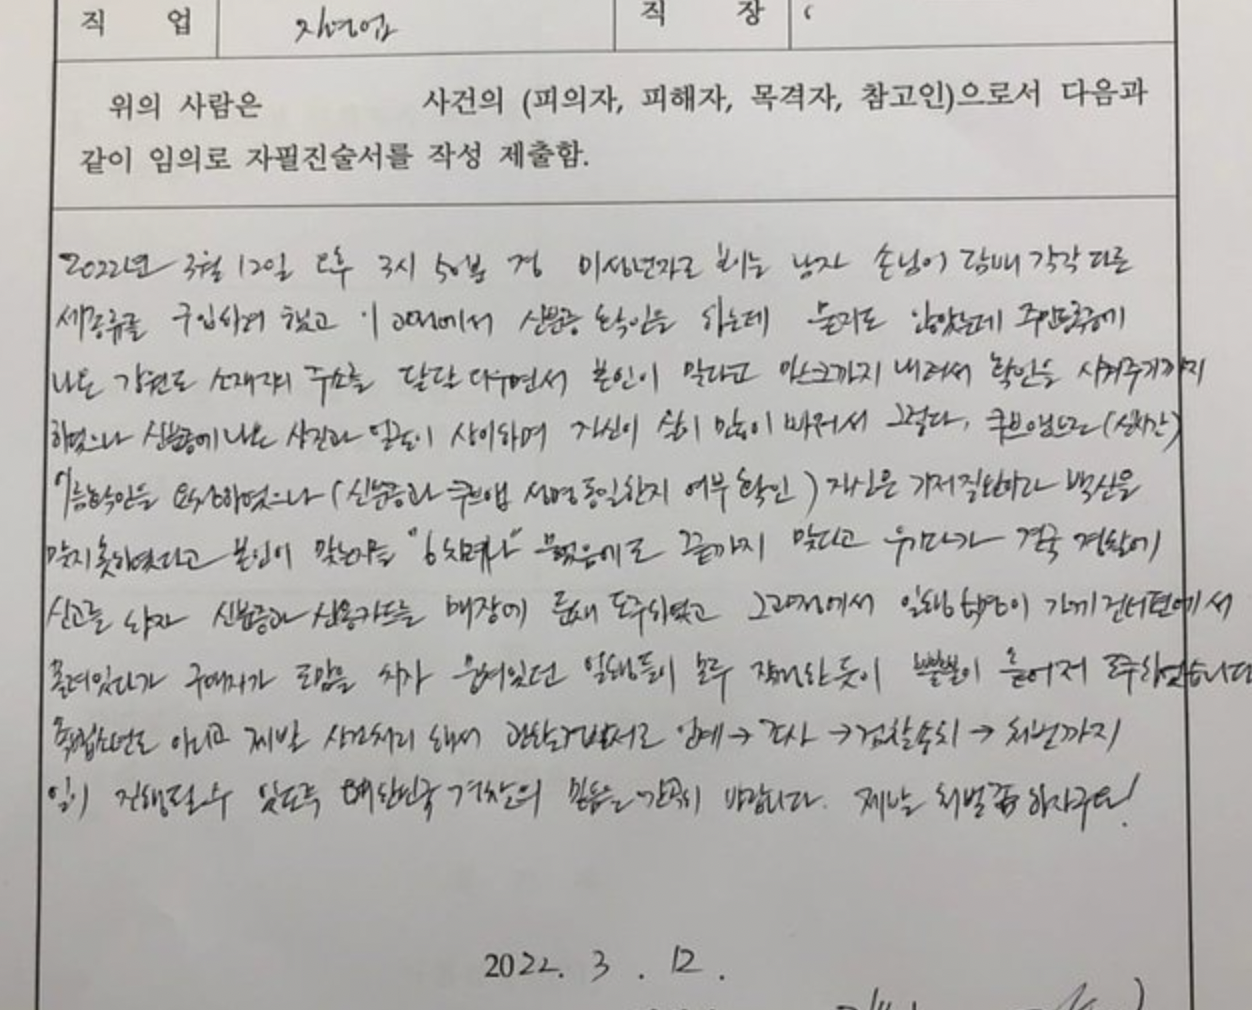 직 업 자영업 직 장
위의 사람은 사건의 (피의자, 피해자, 목격자, 참고인)으로서 다음과
같이 임의로 자필진술서를 작성 제출함.
2022년 3월 12일 오후 3시 50분 경 미성년자로 보이는 남자 손님이 담배 각각 다른
세종류를 구입하려 했고 이 과정에서 신분증 확인을 하는데 묻지도 않았는데 주민등록증에
나온 강원도 소재지의 주소를 달달 외우면서 본인이 맞다고 마스크까지 내려서 확인을 시켜주기까지
하였으나 신분증에 나온 사진과 얼굴이 상이하며 자신이 살이 많이 빠져서 그렇다, 쿠브앱으로 (실시간)
기능확인을 요청하였으나 (신분증과 쿠브앱 성명동일한지 여부 확인) 자신은 기저질환이라 백신을
맞지못하였다고 본인이 맞는지를 물었음에도 끝까지 맞다고 우기다가 결국 경찰에
신고를 하자 신분증과 신용카드를 매장에 둔채 도주하였고 그과정에서 일행 이 가게 건너편에서
몰려있다가 구매자가 도망을 치자 몰려있던 일행들이 모두 짜기라한듯이 뿔뿔이 흩어져 도주하였습니다
촉법소년도 아니고 제발 사건처리 해서 관할 로 인계→조사→검찰송치→처벌까지
일이 진행될수 있도록 대한민국 경찰의 믿음을 간곡히 바랍니다. 제발 처벌좀 하자구요!
2022. 3 . 12 .